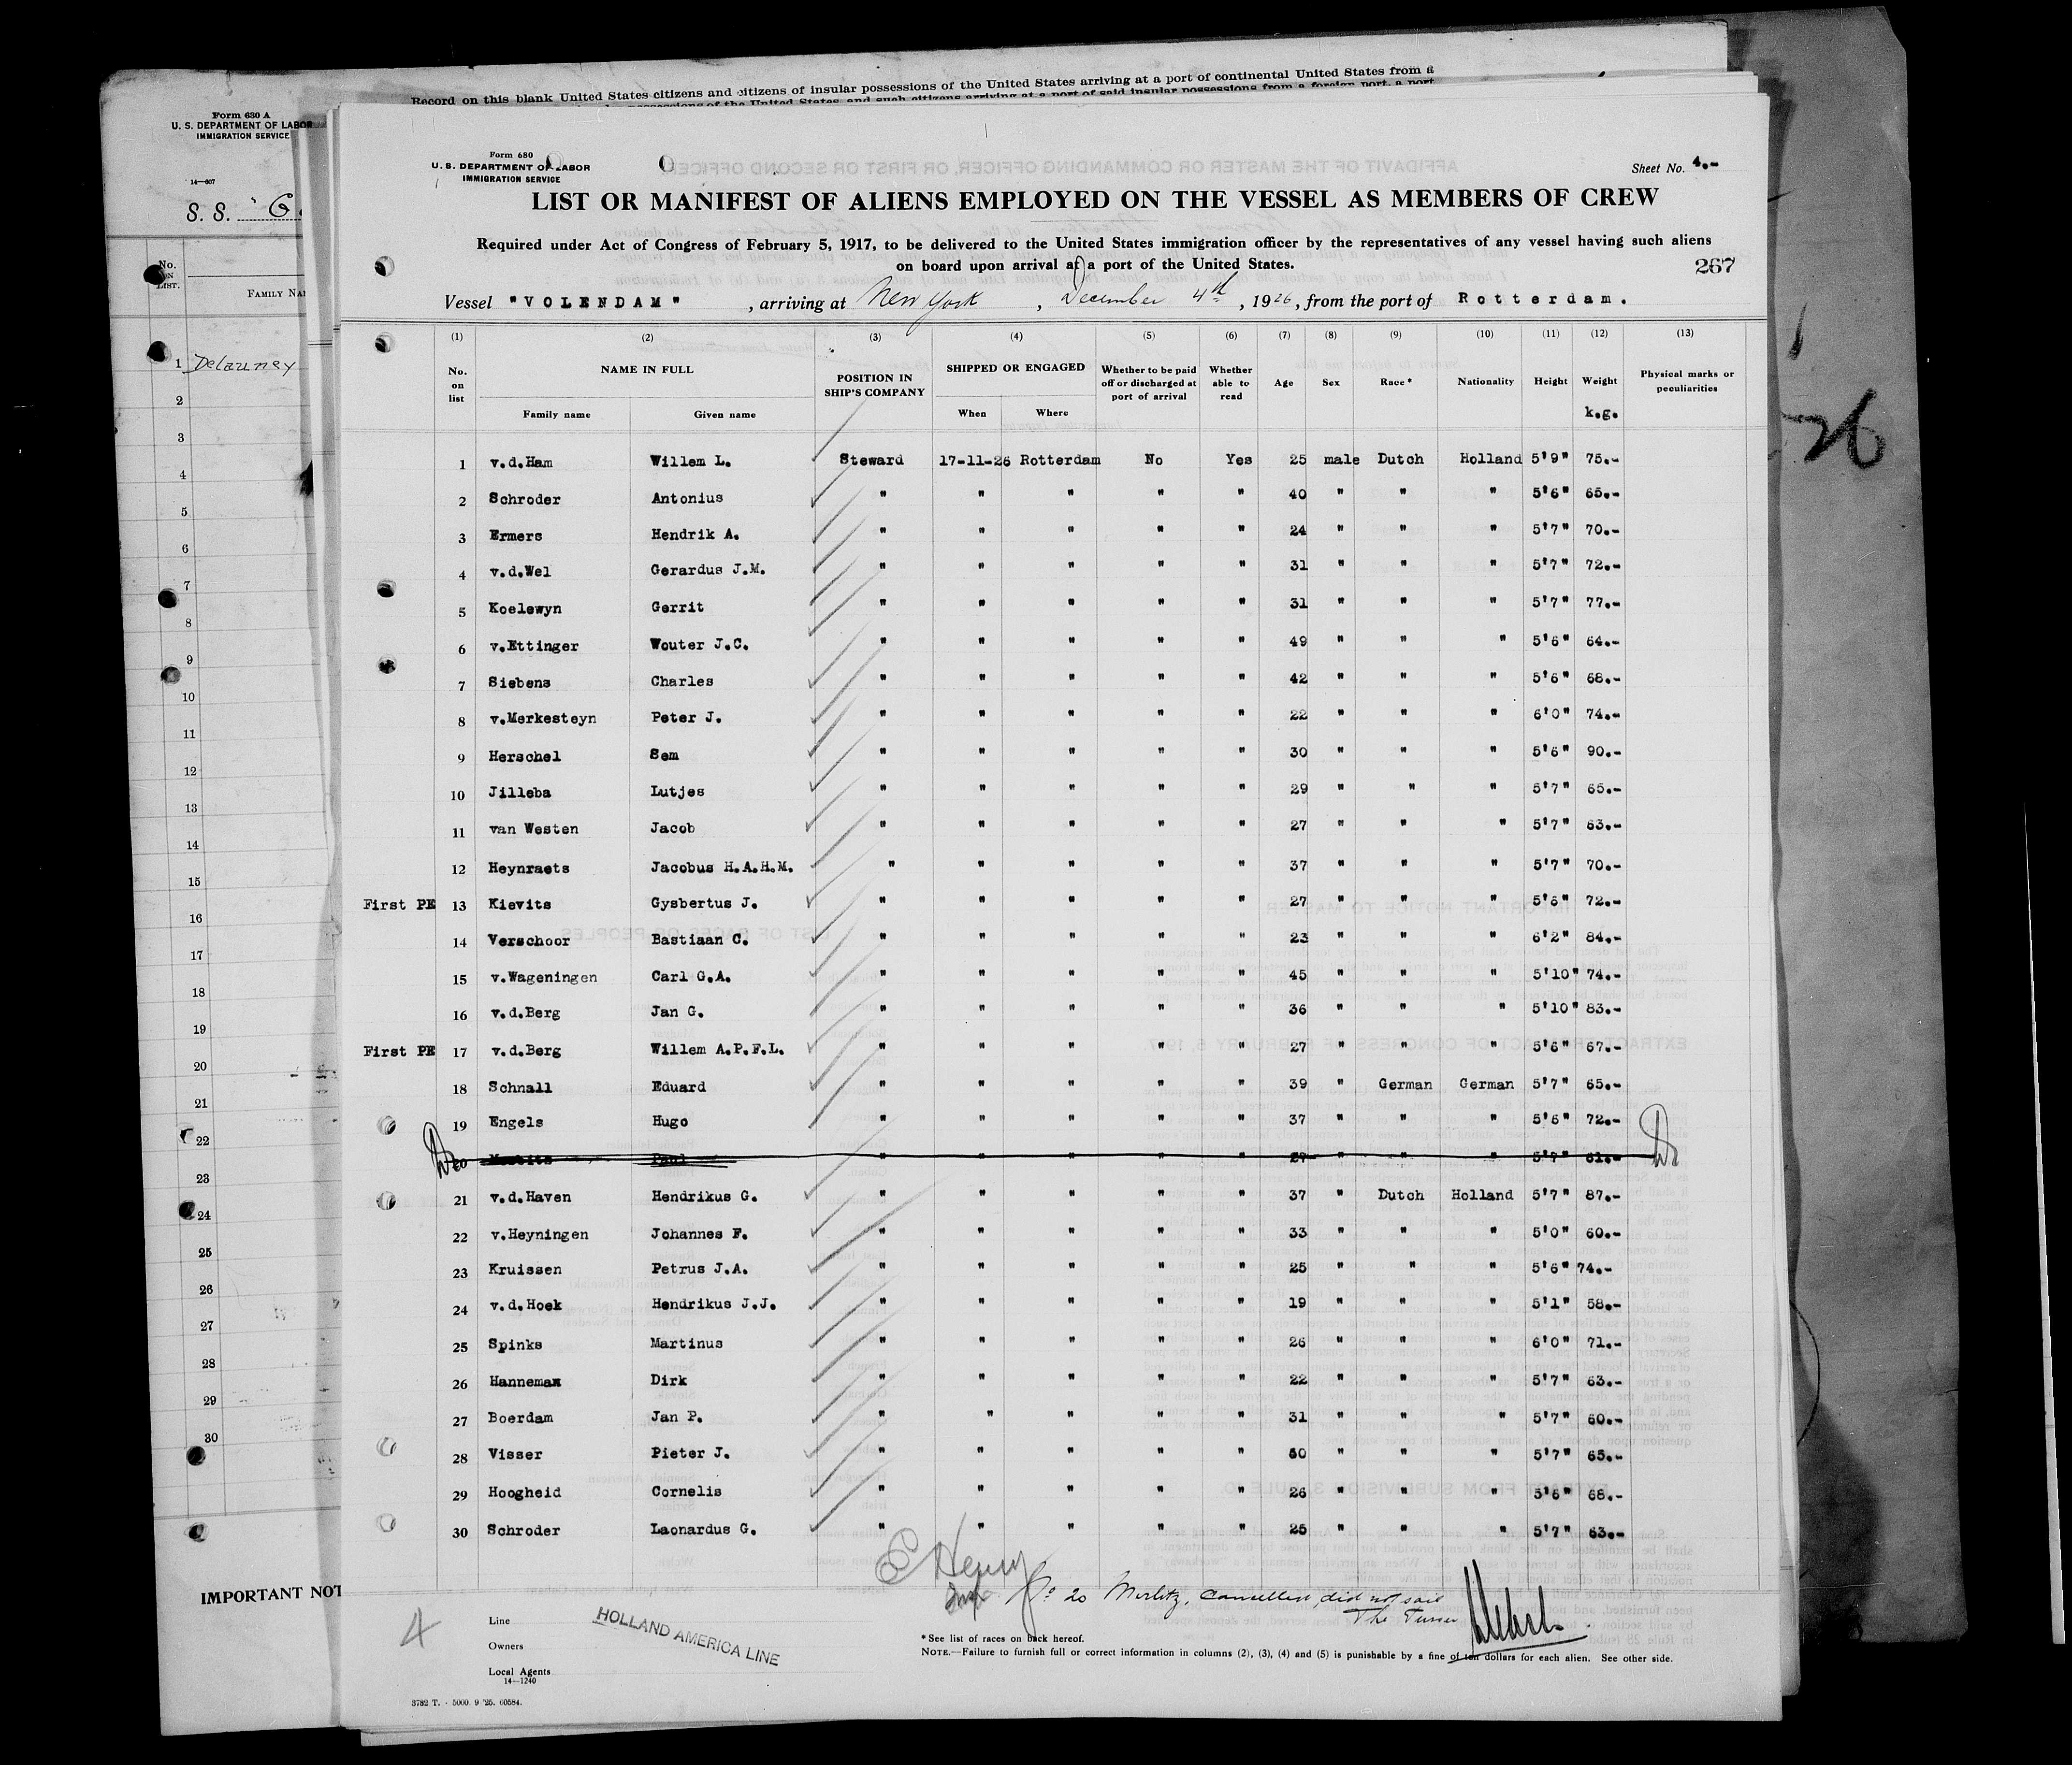 Record on this blank United States citizens and citizens of insular possessions of the United States arriving at a port of continental United States from a
Form 630 A
U. S. DEPARTMENT OF LABOR
IMMIGRATION SERVICE
14—607
S. S.
No. ON LIST.
FAMILY NA
1 Delauney
2
3
4
5
6
7
8
9
10
11
12
13
14
15
16
17
18
19
20
21
22
23
24
25
26
27
28
29
30
IMPORTANT NOT
26
Form 680
U. S. DEPARTMENT OF LABOR
IMMIGRATION SERVICE
Sheet No. 4.-
LIST OR MANIFEST OF ALIENS EMPLOYED ON THE VESSEL AS MEMBERS OF CREW
Required under Act of Congress of February 5, 1917, to be delivered to the United States immigration officer by the representatives of any vessel having such aliens
on board upon arrival at a port of the United States.
267
Vessel "VOLENDAM" , arriving at New York , December 4th , 1926, from the port of Rotterdam.
(1) (2) (3) (4) (5) (6) (7) (8) (9) (10) (11) (12) (13)
No. on list NAME IN FULL POSITION IN SHIP'S COMPANY SHIPPED OR ENGAGED Whether to be paid off or discharged at port of arrival Whether able to read Age Sex Race* Nationality Height Weight Physical marks or peculiarities
Family name Given name When Where k.g.
1 v.d.Ham Willem L. Steward 17-11-26 Rotterdam No Yes 25 male Dutch Holland 5'9" 75.-
2 Schroder Antonius " " " " " 40 " " " 5'6" 65.-
3 Ermers Hendrik A. " " " " " 24 " " " 5'7" 70.-
4 v.d.Wel Gerardus J.M. " " " " " 31 " " " 5'7" 72.-
5 Koelewyn Gerrit " " " " " 31 " " " 5'7" 77.-
6 v.Ettinger Wouter J.C. " " " " " 49 " " " 5'6" 64.-
7 Siebens Charles " " " " " 42 " " " 5'6" 68.-
8 v.Merkesteyn Peter J. " " " " " 22 " " " 6'0" 74.-
9 Herschel Sem " " " " " 30 " " " 5'6" 90.-
10 Jilleba Lutjes " " " " " 29 " " " 5'7" 65.-
11 van Westen Jacob " " " " " 27 " " " 5'7" 63.-
12 Heynraets Jacobus H.A.H.M. " " " " " 37 " " " 5'7" 70.-
First PE 13 Kievits Gysbertus J. " " " " " 27 " " " 5'6" 72.-
14 Verschoor Bastiaan C. " " " " " 23 " " " 6'2" 84.-
15 v.Wageningen Carl G.A. " " " " " 45 " " " 5'10" 74.-
16 v.d.Berg Jan G. " " " " " 36 " " " 5'10" 83.-
First PE 17 v.d.Berg Willem A.P.F.L. " " " " " 27 " " " 5'6" 67.-
18 Schnall Eduard " " " " " 39 " German German 5'7" 65.-
19 Engels Hugo " " " " " 37 " " " 5'6" 72.-
20 Paul " " " " " 27 " " " 5'7" 61.-
21 v.d.Haven Hendrikus G. " " " " " 37 " Dutch Holland 5'7" 87.-
22 v.Heyningen Johannes F. " " " " " 33 " " " 5'0" 60.-
23 Kruissen Petrus J.A. " " " " " 25 " " " 5'6" 74.-
24 v.d.Hoek Hendrikus J.J. " " " " " 19 " " " 5'1" 58.-
25 Spinks Martinus " " " " " 26 " " " 6'0" 71.-
26 Hanneman Dirk " " " " " 22 " " " 5'7" 63.-
27 Boerdam Jan P. " " " " " 31 " " " 5'7" 60.-
28 Visser Pieter J. " " " " " 50 " " " 5'7" 65.-
29 Hoogheid Cornelis " " " " " 26 " " " 5'6" 68.-
30 Schroder Laonardus G. " " " " " 25 " " " 5'7" 63.-
E Henry
No 20 Morlitz, Cancelled, did not sail
The Purser
4
Line HOLLAND AMERICA LINE
Owners
Local Agents
14—1240
*See list of races on back hereof.
NOTE.—Failure to furnish full or correct information in columns (2), (3), (4) and (5) is punishable by a fine of ten dollars for each alien. See other side.
3782 T. - 5000. 9 '25. 60584.